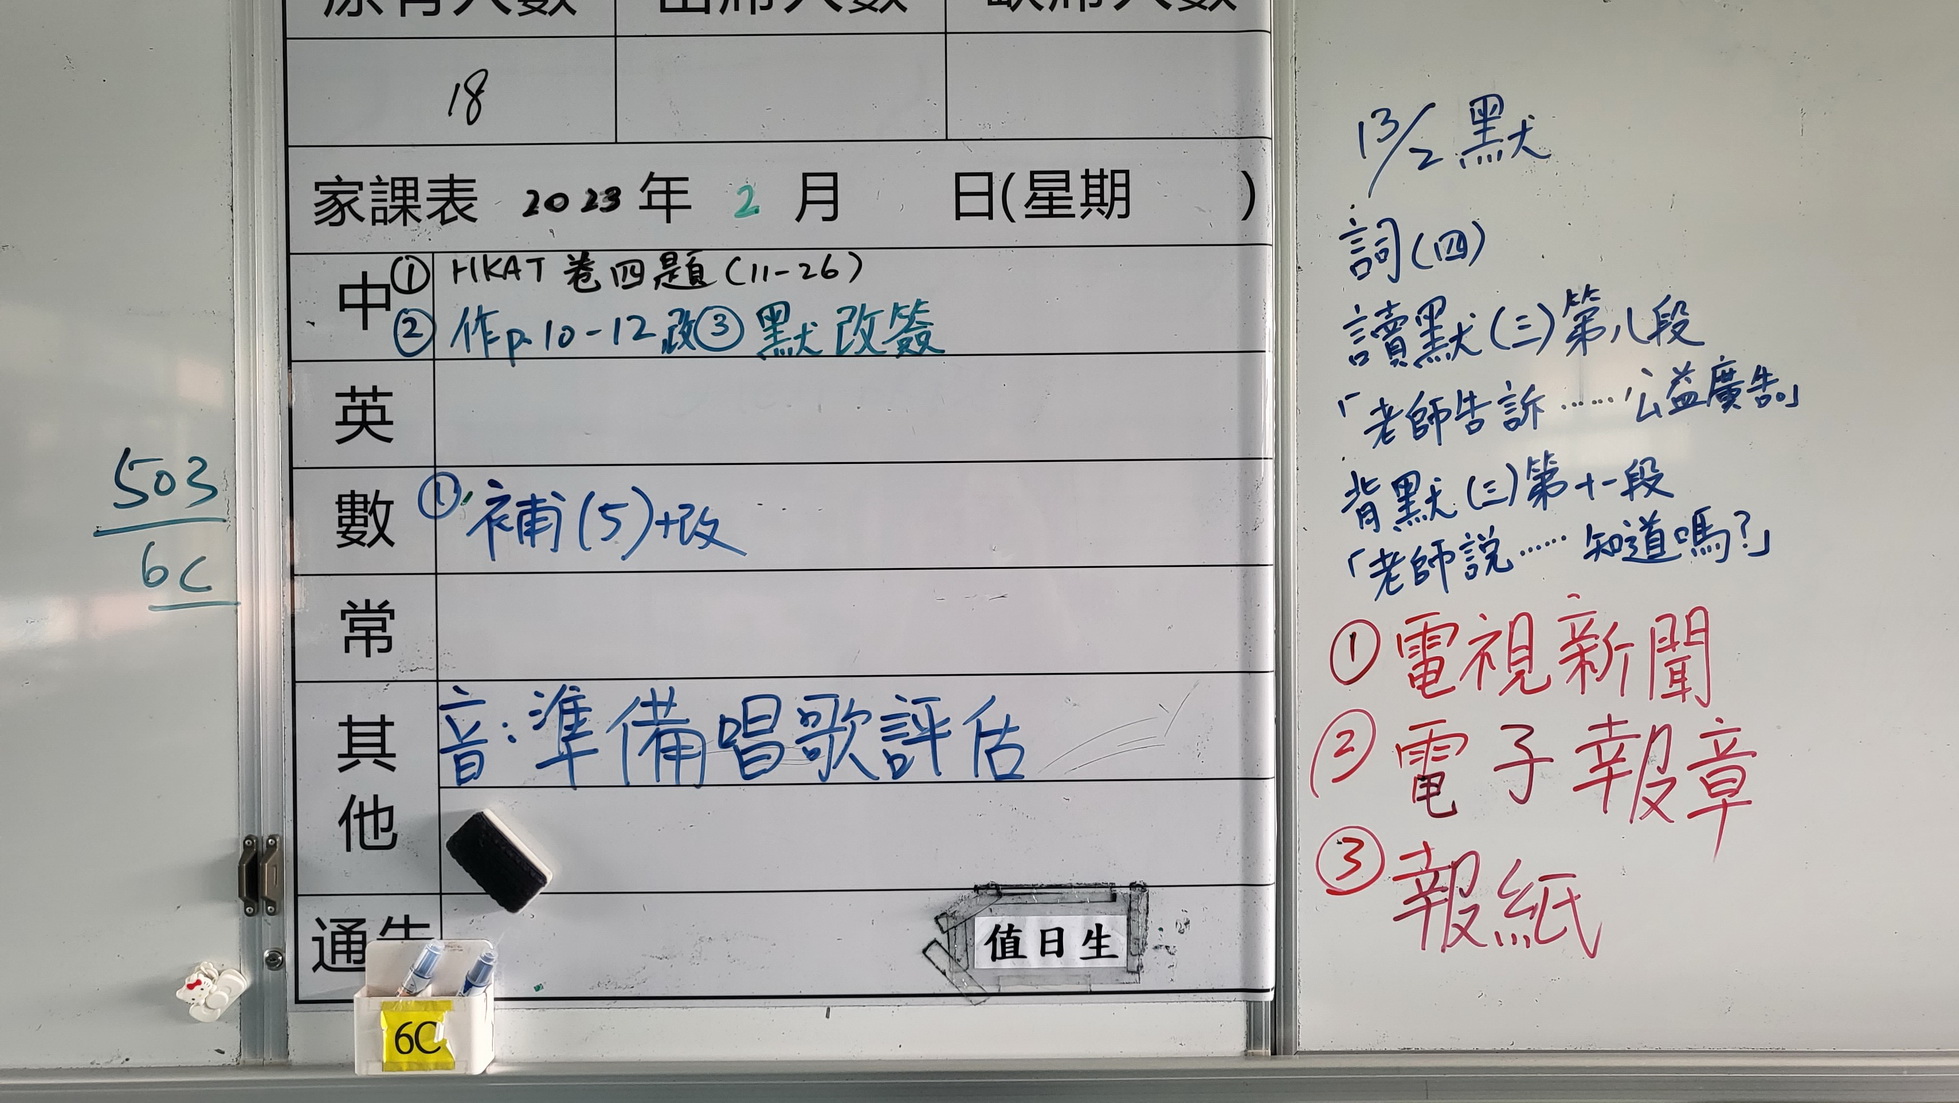 原有人數 出席人數 缺席人數
18
家課表 2023年 2 月 日(星期 )
中 ① HKAT 卷四題(11-26)
② 作p.10-12改 ③ 默改簽
英
數 ① 補(5)+改
常
其他 音:準備唱歌評估
通告
值日生
6C
503
6C
13/2 默
詞(四)
讀默(三)第八段
「老師告訴……公益廣告。」
背默(三)第十一段
「老師說……知道嗎?」
① 電視新聞
② 電子報章
③ 報紙